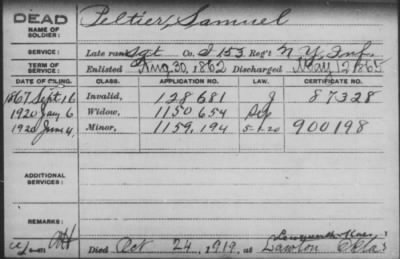 DEAD
NAME OF SOLDIER: Peltier, Samuel
SERVICE: Late rank Sgt Co. I 153 Reg't N.Y. Inf
TERM OF SERVICE: Enlisted Aug. 30, 1862 Discharged May 12 1865
DATE OF FILING. CLASS. APPLICATION NO. LAW. CERTIFICATE NO.
1867 Sept 16 Invalid, 128 681 J 87328
1920 Jany 6 Widow, 1150 654
1920 June 4 Minor, 1159,194 5-1-20 900198
ADDITIONAL SERVICES:
REMARKS:
Leavenworth Kans
Died Oct 24, 1919, at Lawton Okla